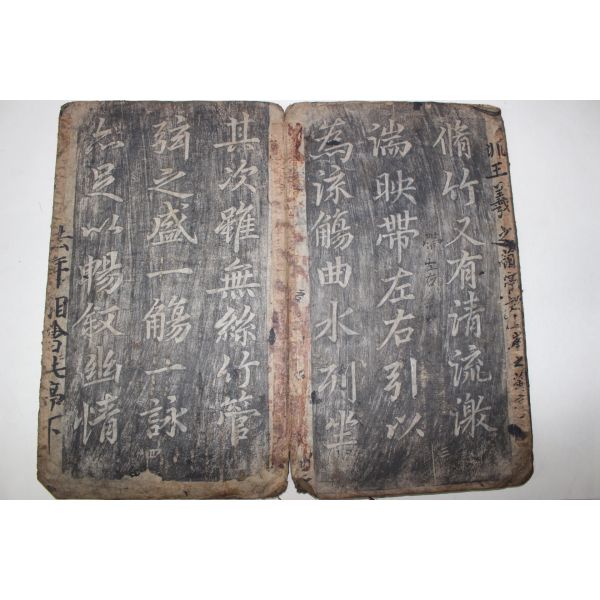 脩竹又有清流激
湍映帶左右引以
為流觴曲水列坐
其次雖無絲竹管
弦之盛一觴一詠
亦足以暢叙幽情
三
四